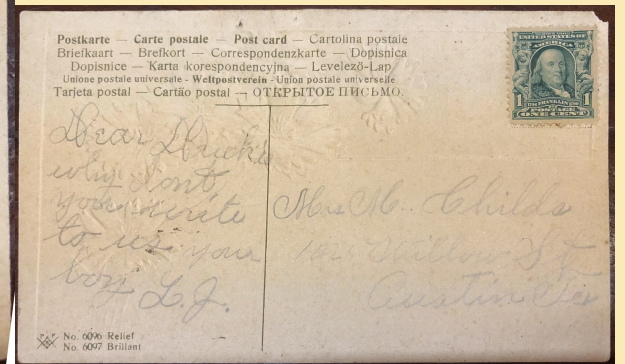 Postkarte — Carte postale — Post card — Cartolina postale
Briefkaart — Brefkort — Correspondenzkarte — Dopisnica
Dopisnice — Karta korespondencyjna — Levelező-Lap
Unione postale universale - Weltpostverein - Union postale universelle
Tarjeta postal — Cartão postal — ОТКРЫТОЕ ПИСЬМО.
UNITED STATES OF
AMERICA
1 1
FRANKLIN
POSTAGE
ONE CENT
Dear
why dont
you write
to us your
boy L.J.
Mrs M. Childs
Willow St
Austin Tex
No. 6096 Relief
No. 6097 Brillant